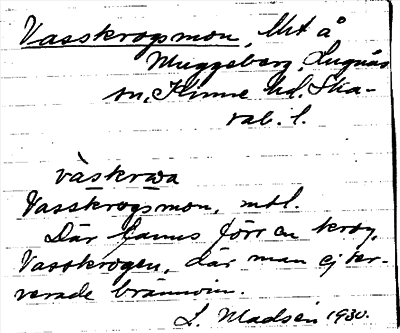 Vasskrogsmon, Mt å
Muggeberg, Lugnås
sn, Kinne hd. Ska-
rab. l.
våskrᴐa
Vasskrogsmon, mtl.
Där fanns förr en krog,
Vasskrogen, där man ej ser-
verade brännvin.
L. Madsén 1930.